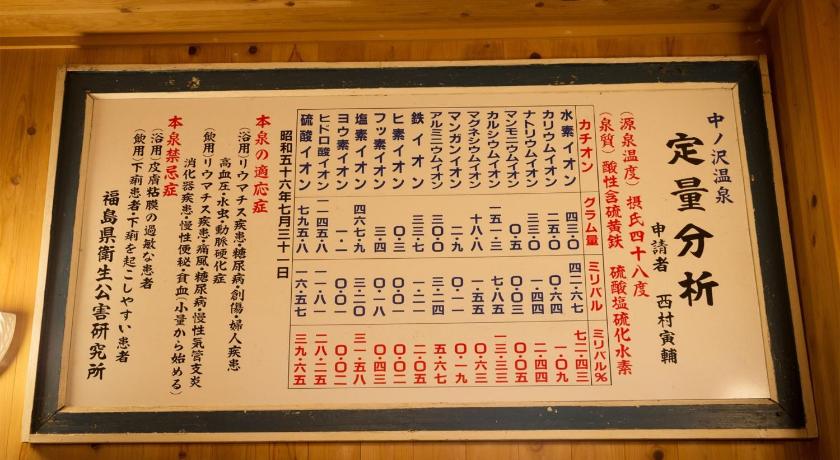 中ノ沢温泉
定量分析
申請者 西村寅輔
(源泉温度) 摂氏四十八度
(泉質) 酸性含硫黄鉄 硫酸塩硫化水素
カチオン グラム量 ミリバル ミリバル%
水素イオン 四三・〇 四二・六七 七二・四三
カリウムイオン 二五・〇 〇・六四 一・〇九
ナトリウムイオン 三三・〇 一・四四 二・四四
マンモニウムイオン 〇・五 〇・〇三 〇・〇五
カルシウムイオン 一五一・三 七・五五
マグネシウムイオン 十八・八 一・五五 〇・六三
マンガンイオン 二・九 〇・一一 〇・一九
アルミニウムイオン 三・二四 五・六七
鉄イオン 三三・七 一・二一 二・〇五
ヒ素イオン
フッ素イオン 三・四 〇・一八 〇・四三
塩素イオン 四六七・九 一三・二〇 三一・五八
ヨウ素イオン 一・一 〇・〇一 〇・〇二
ヒドロ酸イオン 一一四五・八 一一・八一 二八・二五
硫酸イオン 七九五・八 一六・五七 三九・六五
昭和五十六年七月三十一日
本泉の適応症
(浴用)リウマチス疾患・糖尿病・創傷・婦人疾患
高血圧・水虫・動脈硬化症
(飲用)リウマチス疾患・痛風・糖尿病・慢性気管支炎
消化器疾患・慢性便秘・貧血(小量から始める)
本泉禁忌症
(浴用)皮膚粘膜の過敏な患者
(飲用)下痢患者・下痢を起こしやすい患者
福島県衛生公害研究所